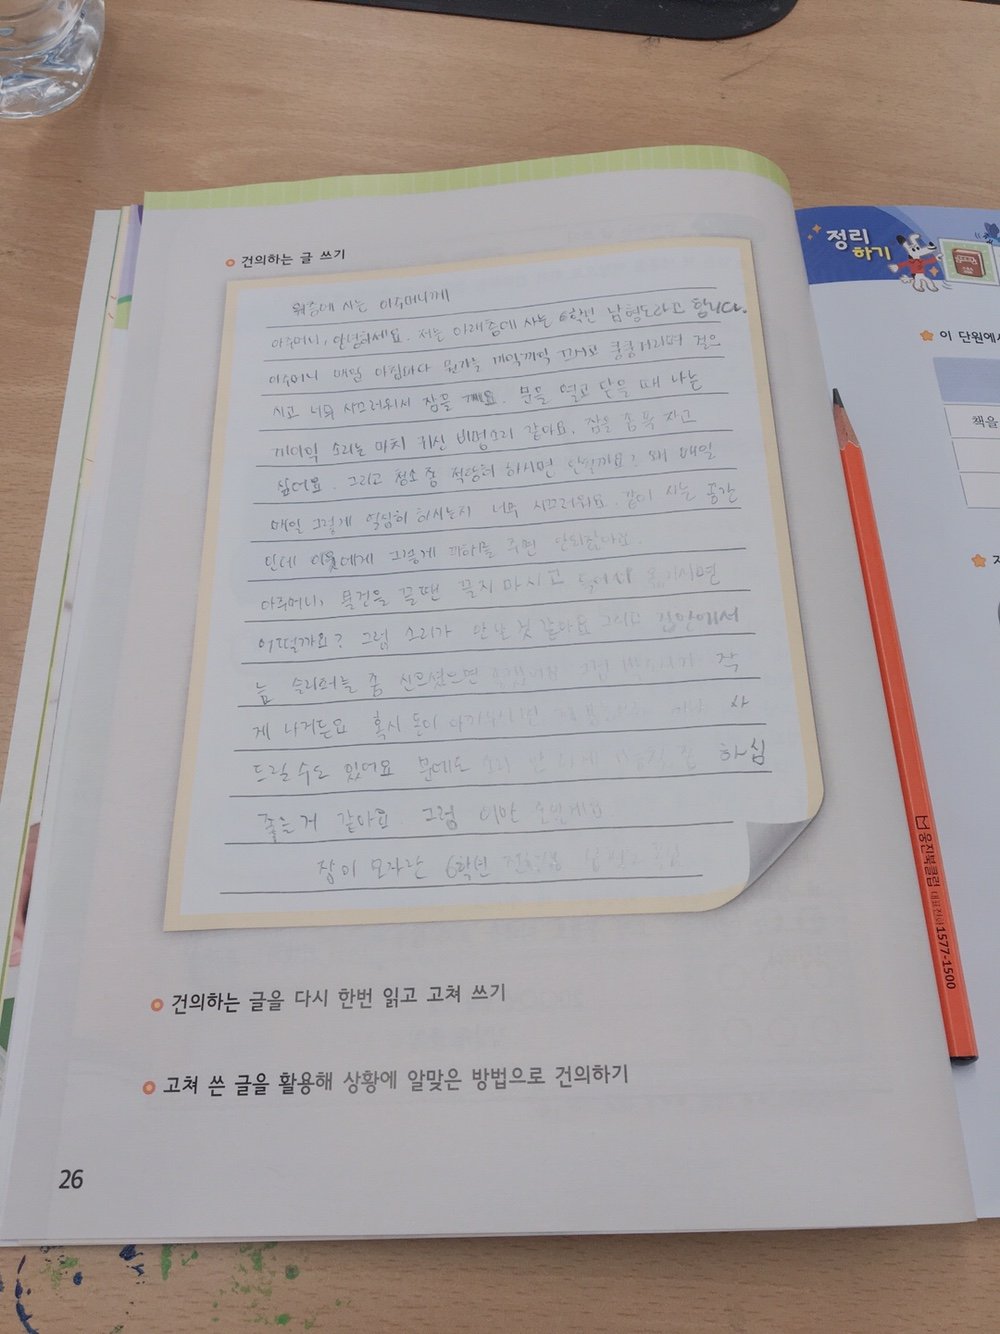 건의하는 글 쓰기
위층에 사는 아주머니께
아주머니, 안녕하세요. 저는 아래층에 사는 6학년 남형도라고 합니다.
아주머니 매일 아침마다 의자를 끼익끼익 끄시고 쿵쿵거리며 걸으
시고 너무 시끄러워서 잠을 깨요. 문을 열고 닫을 때 나는
끼이익 소리는 마치 귀신 비명소리 같아요. 잠을 좀 푹 자고
싶어요. 그리고 청소 좀 적당히 하시면 안될까요? 왜 매일
매일 그렇게 열심히 하시는지 너무 시끄러워요. 같이 사는 공간
인데 이웃에게 그렇게 피해를 주면 안되잖아요.
아주머니, 물건을 끌땐 끌지 마시고 들어서 옮기시면
어떨까요? 그럼 소리가 안날 것 같아요 그리고 집안에서
슬리퍼를 좀 신으셨으면 그럼 작
게 나거든요 혹시 돈이 사
드릴 수도 있어요 문에도 소리 안 나게 좀 하심
좋을거 같아요. 그럼 이만
잠이 모자란 6학년
건의하는 글을 다시 한번 읽고 고쳐 쓰기
고쳐 쓴 글을 활용해 상황에 알맞은 방법으로 건의하기
26
정리
하기
이 단원에서
책을
웅진북클럽 대표전화1577-1500